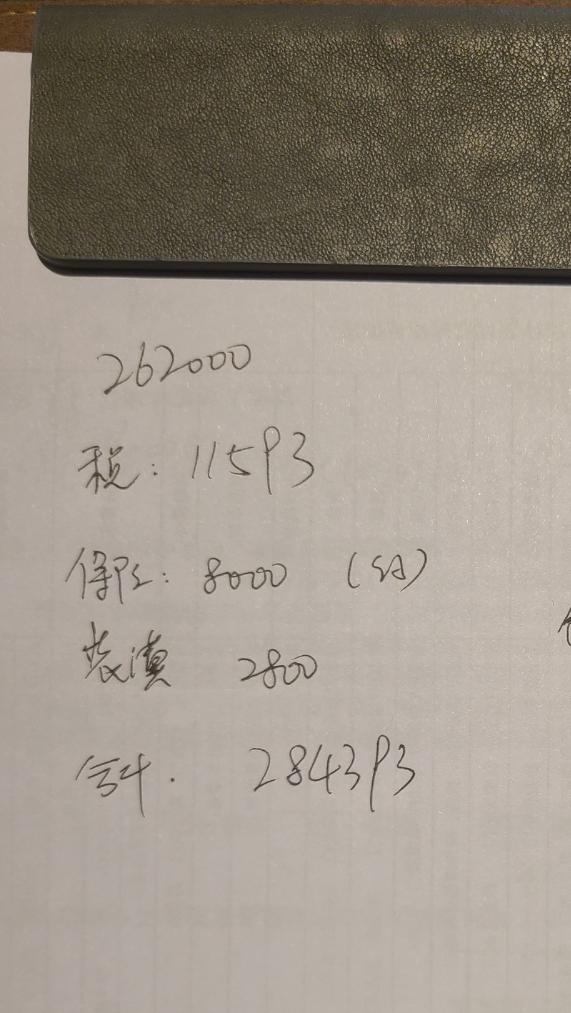 262000
税: 11593
保险: 8000 (约)
装潢 2800
合计. 284393